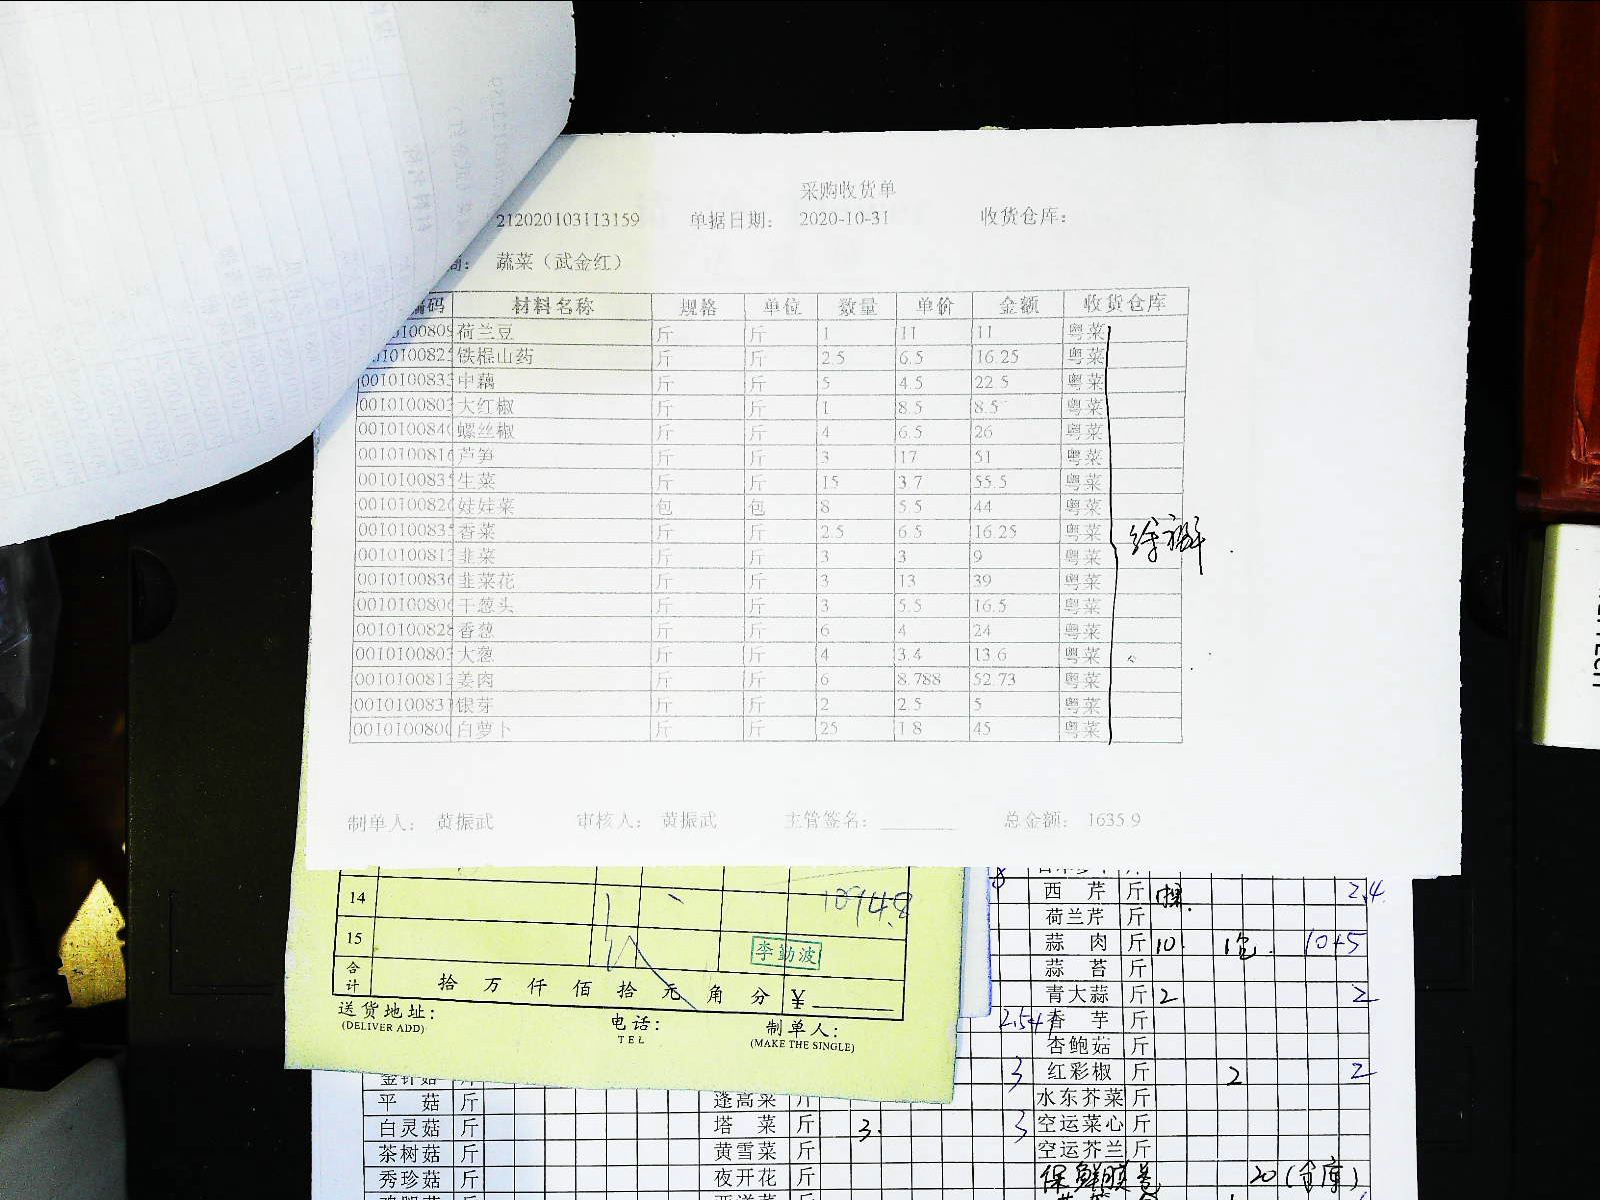 采购收货单
212020103113159 单据日期： 2020-10-31 收货仓库：
商： 蔬菜（武金红）
编码 材料名称 规格 单位 数量 单价 金额 收货仓库
0100809 荷兰豆 斤 斤 1 11 11 粤菜
010100825 铁棍山药 斤 斤 2.5 6.5 16.25 粤菜
0010100833 中藕 斤 斤 5 4.5 22.5 粤菜
0010100803 大红椒 斤 斤 1 8.5 8.5 粤菜
001010084 螺丝椒 斤 斤 4 6.5 26 粤菜
0010100816 芦笋 斤 斤 3 17 51 粤菜
001010083 生菜 斤 斤 15 3.7 55.5 粤菜
001010082 娃娃菜 包 包 8 5.5 44 粤菜
001010083 香菜 斤 斤 2.5 6.5 16.25 粤菜
001010081 韭菜 斤 斤 3 3 9 粤菜
0010100836 韭菜花 斤 斤 3 13 39 粤菜
001010080 干葱头 斤 斤 3 5.5 16.5 粤菜
0010100828 香葱 斤 斤 6 4 24 粤菜
0010100803 大葱 斤 斤 4 3.4 13.6 粤菜
001010081 姜肉 斤 斤 6 8.788 52.73 粤菜
001010083 银芽 斤 斤 2 2.5 5 粤菜
001010080 白萝卜 斤 斤 25 1.8 45 粤菜
制单人： 黄振武 审核人： 黄振武 主管签名： 总金额： 1635.9
14 1094.8
15 李勤波
合计 拾 万 仟 佰 拾 元 角 分 ￥
送货地址： 电话： 制单人：
(DELIVER ADD) TEL (MAKE THE SINGLE)
8 西芹 斤 2.4
荷兰芹 斤
蒜肉 斤 10 1包 10+5
蒜苔 斤
青大蒜 斤 2 2
2.5+ 香芋 斤
杏鲍菇 斤
金针菇 斤 3 红彩椒 斤 2 2
平菇 斤 蓬高菜 斤 水东芥菜 斤
白灵菇 斤 塔菜 斤 3 3 空运菜心 斤
茶树菇 斤 黄雪菜 斤 空运芥兰 斤
秀珍菇 斤 夜开花 斤 保鲜膜 20